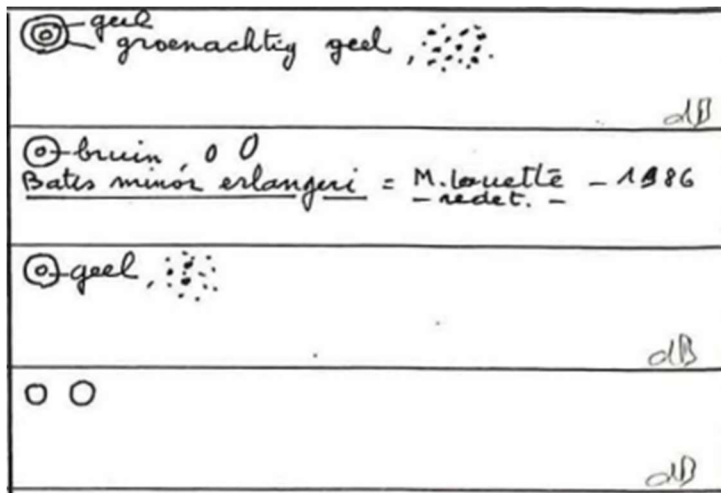 geel
groenachtig geel,
dB
bruin,
Batis minor erlangeri = M. Louette - 1986
- redet. -
geel,
dB
dB